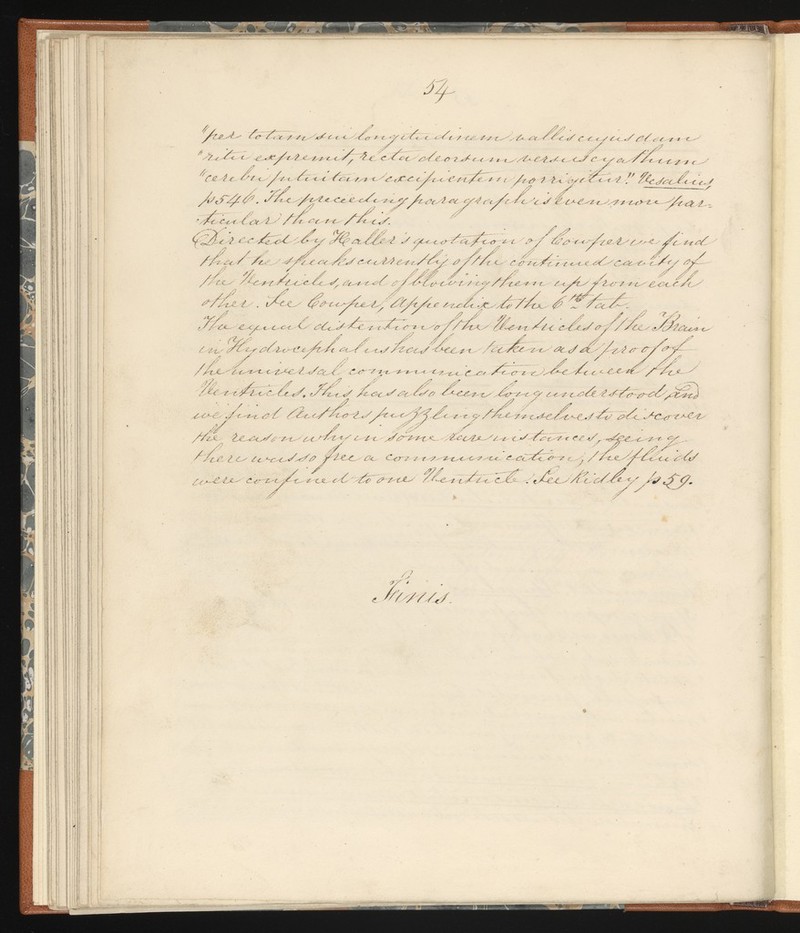 54
"per totam sui longitudinem vallis cujusdam
"ritu exprimit, recta deorsum versus cyathum
"cerebri pituitam excipientem porrigitur." Vesalius,
p 546. The preceeding paragraph is even more par-
ticular than this.
Directed by Haller's quotation of Cowper we find
that he speaks currently of the continued cavity of
the Ventricles, and of blowing them up from each
other. See Cowper, Appendix to the 6th Tab.
The equal distention of the Ventricles of the Brain
in Hydrocephalus has been taken as a proof of
the universal communication between the
Ventricles. This has also been long understood and
we find Authors puzzling themselves to discover
the reason why in some rare instances, seeing
there was so free a communication, the fluids
were confined to one Ventricle. See Ridley p 59.
Finis.